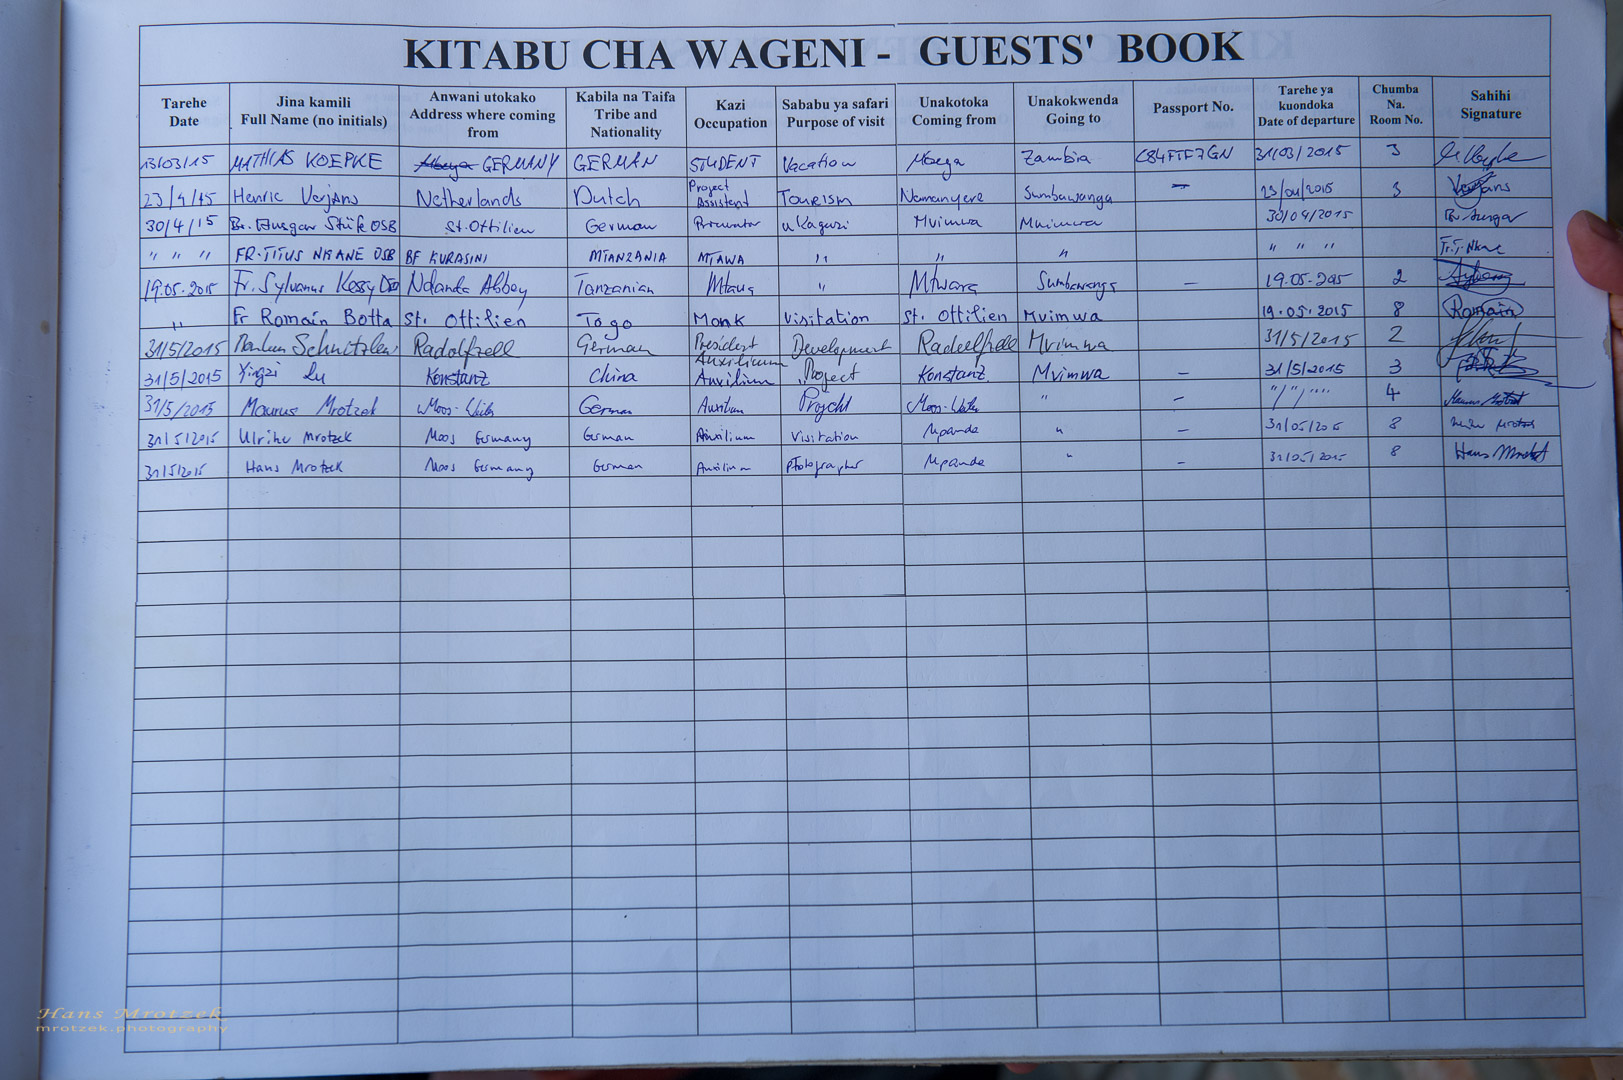 KITABU CHA WAGENI - GUESTS' BOOK
Tarehe Date
Jina kamili Full Name (no initials)
Anwani utokako Address where coming from
Kabila na Taifa Tribe and Nationality
Kazi Occupation
Sababu ya safari Purpose of visit
Unakotoka Coming from
Unakokwenda Going to
Passport No.
Tarehe ya kuondoka Date of departure
Chumba Na. Room No.
Sahihi Signature
13/03/15 MATHIAS KOEPKE GERMANY GERMAN STUDENT Vacation Mbeya Zambia 31/03/2015 3
23/4/15 Henric Verjans Netherlands Dutch Project Assistent Tourism Namanyere Sumbawanga — 23/04/2015 3 Verjans
30/4/15 Br. Ansgar Stüfe OSB St. Ottilien German Procurator ukaguzi Mvimwa Mvimwa 30/04/2015 Br. Ansgar
" " " FR. TITUS NKANE OSB BF KURASINI MTANZANIA MTAWA " " " " " " Fr. T. Nkane
19.05.2015 Fr. Sylvanus Kessy OSB Ndanda Abbey Tanzanian Mtawa " Mtwara Sumbawanga — 19.05.2015 2
" Fr Romain Botta St. Ottilien Togo Monk Visitation St. Ottilien Mvimwa 19.05.2015 8 Romain
31/5/2015 Schnitzler Radolfzell German President Auxilium Development Radolfzell Mvimwa 31/5/2015 2
31/5/2015 Yingzi Lu Konstanz China Auxilium "Project Konstanz Mvimwa — 31/5/2015 3
31/5/2015 Maurus Mrotzek Moos-Weiler German Auxilium Projekt Moos-Weiler " — "/"/"" 4 Maurus Mrotzek
31/5/2015 Ulrike Mrotzek Moos Germany German Auxilium Visitation Mpanda " — 31/05/2015 8 Ulrike Mrotzek
31/5/2015 Hans Mrotzek Moos Germany German Auxilium Photographer Mpanda " — 31/05/2015 8 Hans Mrotzek
Hans Mrotzek
mrotzek.photography